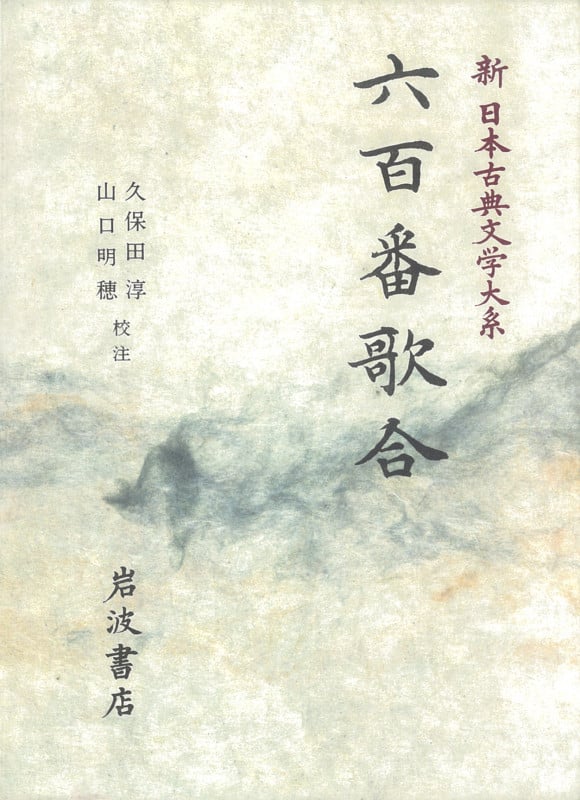 新 日本古典文学大系
六百番歌合
久保田 淳
山口明穂 校注
岩波書店